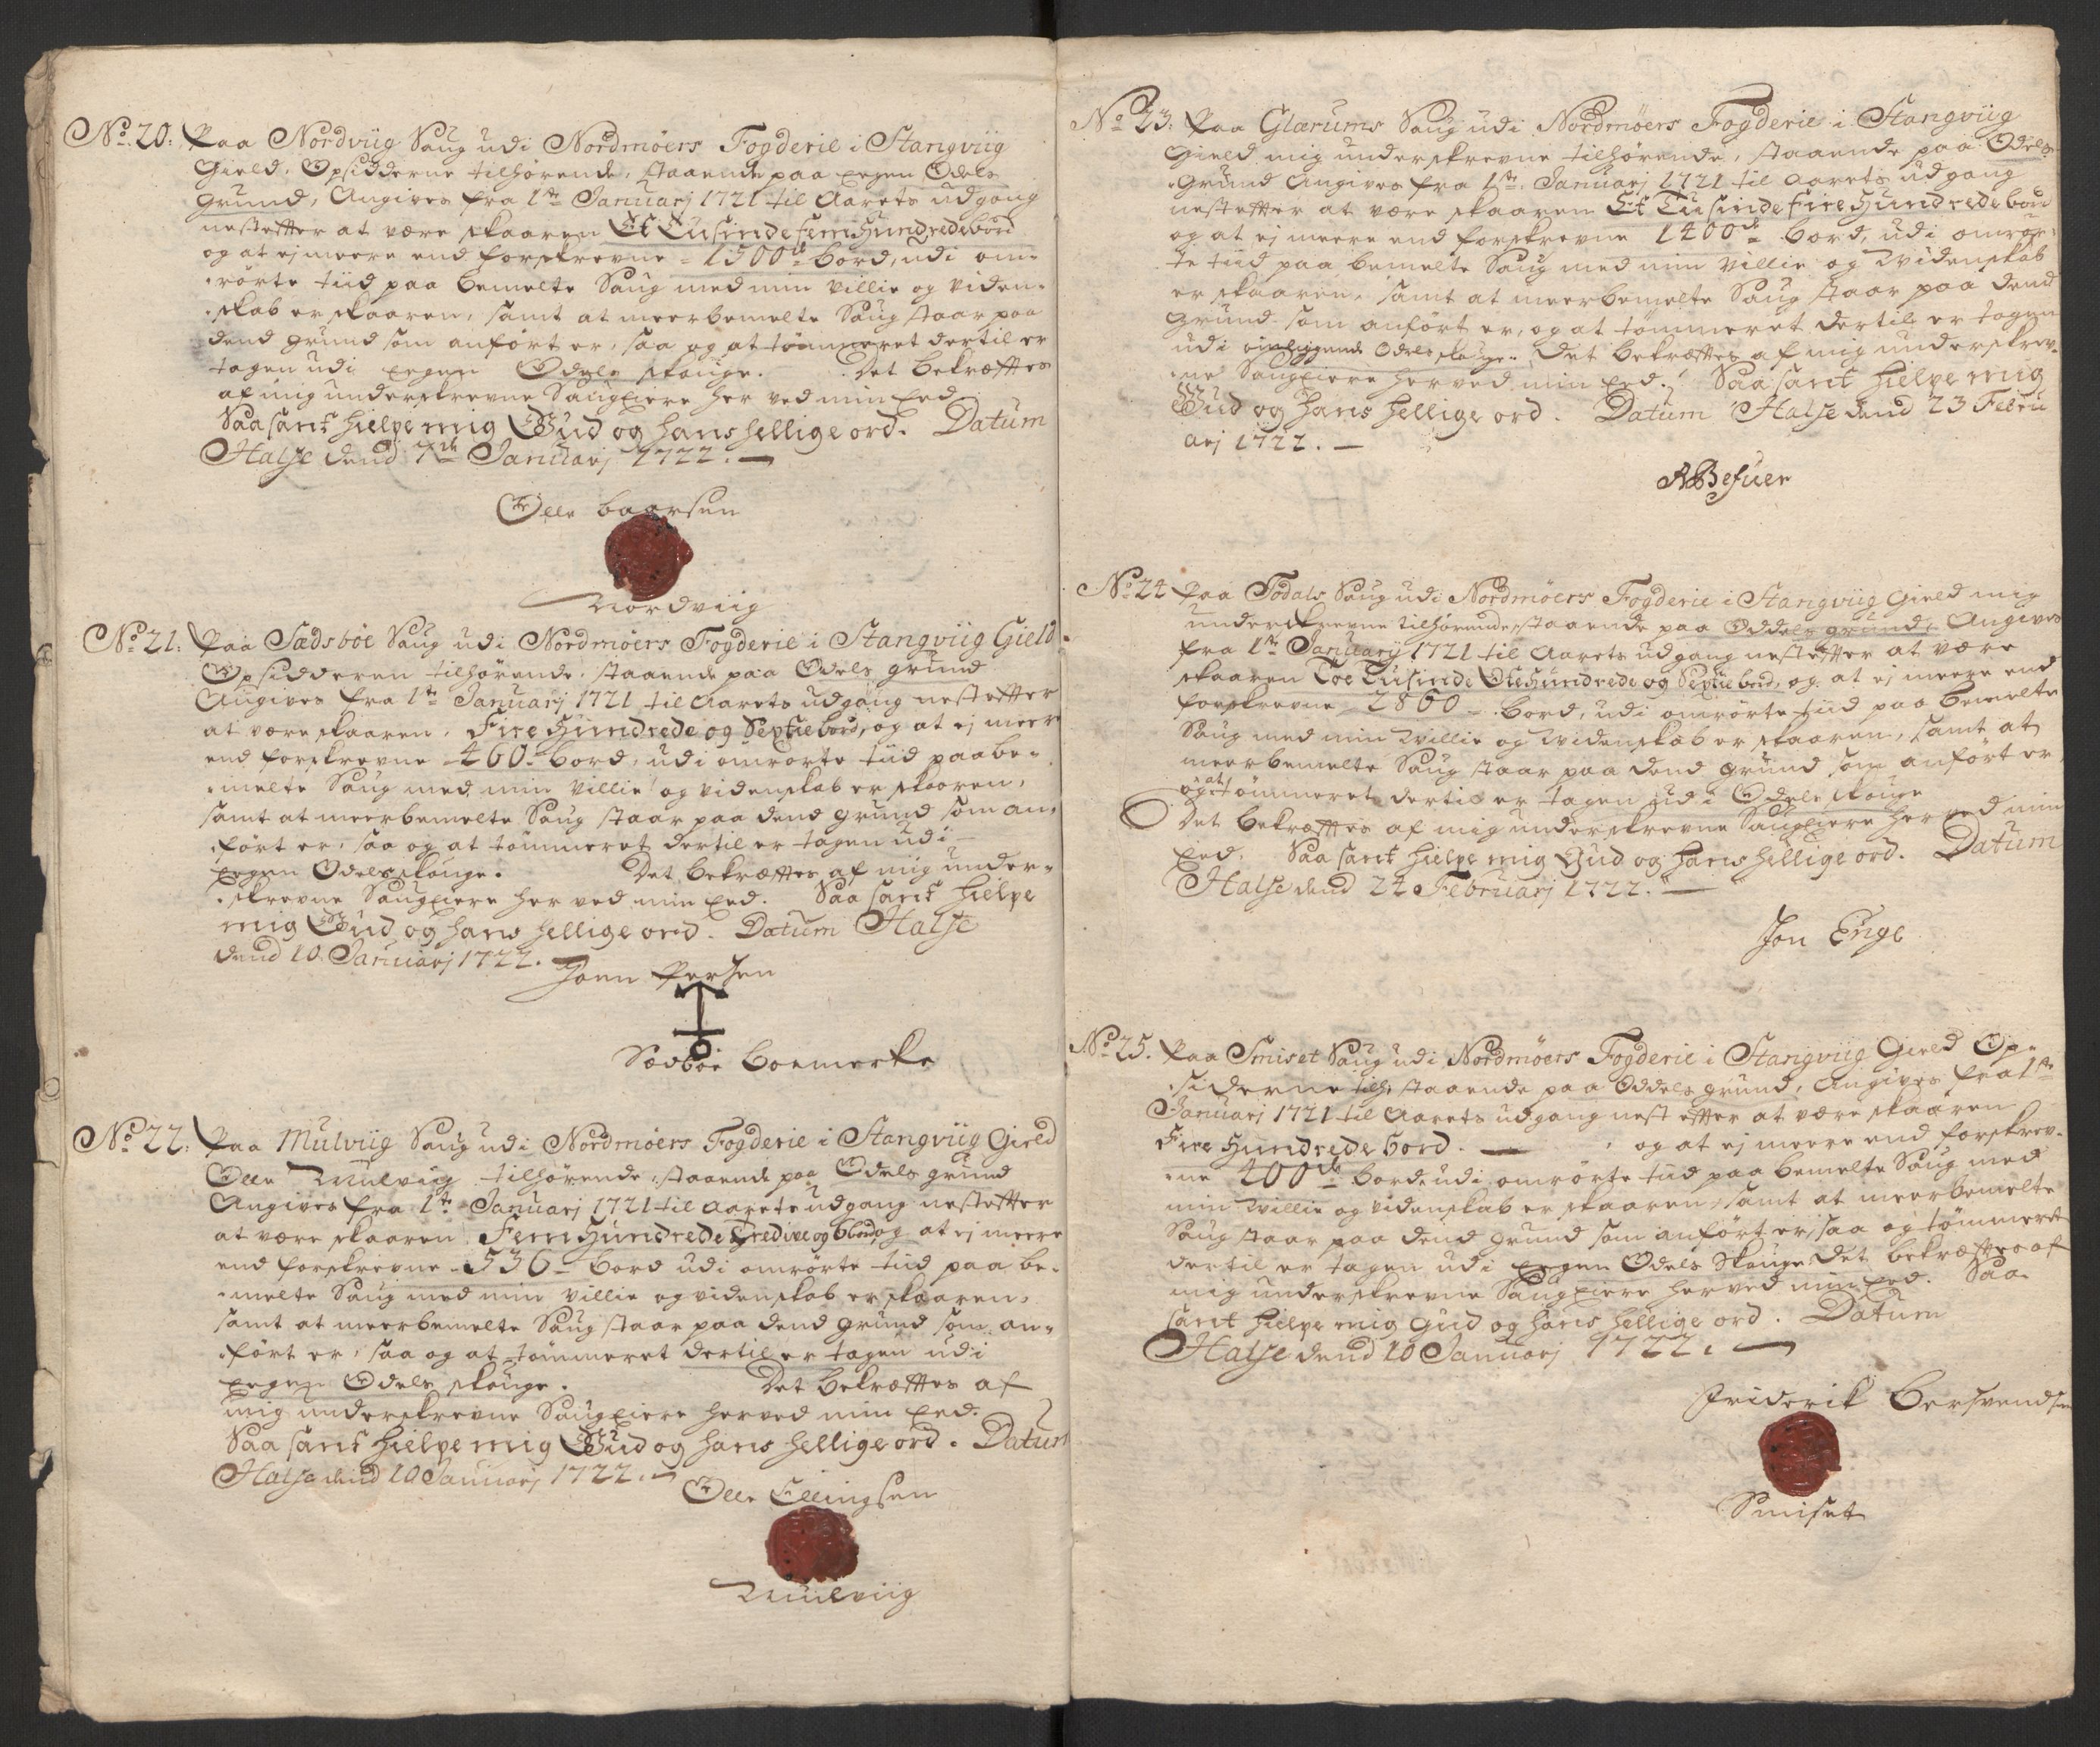 No 20. Paa Nordviig Saug udi Nordmöers Fogderie i Stangviig
Gield, Opsidderne tilhörende, staaende paa Eegen Odels
Grund, Angives fra 1te Januarj 1721 til Aarets udgang
nestefter at være skaaren Et Tusinde fem Hundrede bord
og at ej meere end forskrevne 1500de bord, udi om-
rörte tiid paa bemelte Saug med min villie og viden-
skab er skaaren, samt at meerbemelte Saug staar paa
dend grund som anfört er, saa og at tömmeret dertil er
tagen udi Eegen Odels skouge. Det bekræfftes
af mig underskrevne Saugeiere her ved min Eed.
Saa sant hielpe mig Gud og hans hellige ord. Datum
Halse dend 7de Januarj 1722.
Olle baarsen
Nordviig
No 21. Paa Sædsböe Saug udi Nordmöers Fogderie i Stangviig Gield
Opsidderen tilhörende, staaende paa Odels grund
Angives fra 1te Januarj 1721 til Aarets udgang nestefter
at være skaaren, Fire Hundrede og Sextie bord, og at ej meer
end forskrevne 460 bord, udi omrörte tiid paa be-
melte Saug med min villie og videnskab er skaaren,
samt at meerbemelte Saug staar paa dend grund som an-
fört er, saa og at tömmeret dertil er tagen udi
Eegen Odels skouge. Det bekræfftes af mig under-
skrevne Saugeiere her ved min Eed. Saa sant hielpe
mig Gud og hans hellige ord. Datum Halse
dend 10 Januarj 1722.
Joen Persen
Sædböe boemerke
No 22. Paa Mulviig Saug udi Nordmöers Fogderie i Stangviig Gield
Olle Mulviig tilhörende, staaende paa Odels grund
Angives fra 1te Januarj 1721 til Aarets udgang nestefter
at være skaaren Fem Hundrede Tredive og 6 bord, og at ej meere
end forskrevne 536 bord udi omrörte tiid paa be-
melte Saug med min villie og videnskab er skaaren,
samt at meerbemelte Saug staar paa dend grund som an-
fört er, saa og at tömmeret dertil er tagen udi
Eegen Odels skouge. Det bekræfftes af
mig underskrevne Saugeiere herved min Eed.
Saa sant hielpe mig Gud og hans hellige ord. Datum
Halse dend 10 Januarj 1722.
Olle Ellingsen
Mulviig
No 23. Paa Glærums Saug udi Nordmöers Fogderie i Stangviig
Gield mig underskrevne tilhörende, staaende paa Odels
Grund Angives fra 1ste Januarj 1721 til Aarets udgang
nestefter at være skaaren Et Tusinde Fire Hundrede bord
og at ej meere end forskrevne 1400de bord, udi omrör-
te tiid paa bemelte Saug med min villie og Widenskab
er skaaren, samt at meerbemelte Saug staar paa dend
Grund som anfört er, og at tömmeret dertil er tagen
udi Odels skouge. Det bekræfftes af mig underskrev-
ne Saugeiere herved min Eed. Saa sant hielpe mig
Gud og hans hellige ord. Datum Halse dend 23 Febru
arj 1722.
No 24 Paa Todals Saug udi Nordmöers Fogderie i Stangviig Gield mig
underskrevne tilhörende, staaende paa Oddels grund, Angives
fra 1te Januarij 1721 til Aarets udgang nestefter at være
skaaren Toe Tusinde Otte Hundrede og Sextie bord, og at ej meere end
forskrevne 2860 bord, udi omrörte tiid paa bemelte
Saug med min Willie og Widenskab er skaaren, samt at
meerbemelte Saug staar paa dend grund som anfört er,
og at tömmeret dertil er tagen udi Odels skouge
Det bekræfftes af mig underskrevne Saugeiere herved min
Eed. Saa sant hielpe mig Gud og hans hellige ord. Datum
Halse dend 24 Februarj 1722.
Jon Enge
No 25. Paa Smiset Saug udi Nordmöers Fogderie i Stangviig Gield Op-
sidderne tilh: staaende paa Oddels grund, Angives fra 1te
Januarj 1721 til Aarets udgang nest efter at være skaaren
Fire Hundrede bord. og at ej meere end forskrev-
ne 400de bord udi omrörte tiid paa bemelte Saug med
min Willie og videnskab er skaaren, samt at meerbemelte
Saug staar paa dend grund som anfört er, saa og tömmeret
dertil er tagen udi Eegen Odels Skouge. Det bekræfftes af
mig underskrevne Saugeiere herved min Eed. Saa
sant hielpe mig Gud og hans hellige ord. Datum
Halse dend 10 Januarj 1722.
Friderik Bersvendsen
Smiset